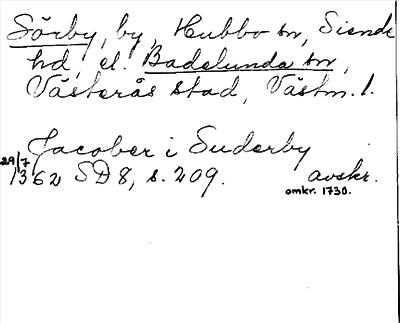 Sörby, by, Hubbo sn, Siende
hd, el. Badelunda sn,
Västerås stad, Västm. l.
Jacober i Suderby
29/7 1362 SD 8, s. 209. avskr.
omkr. 1730.